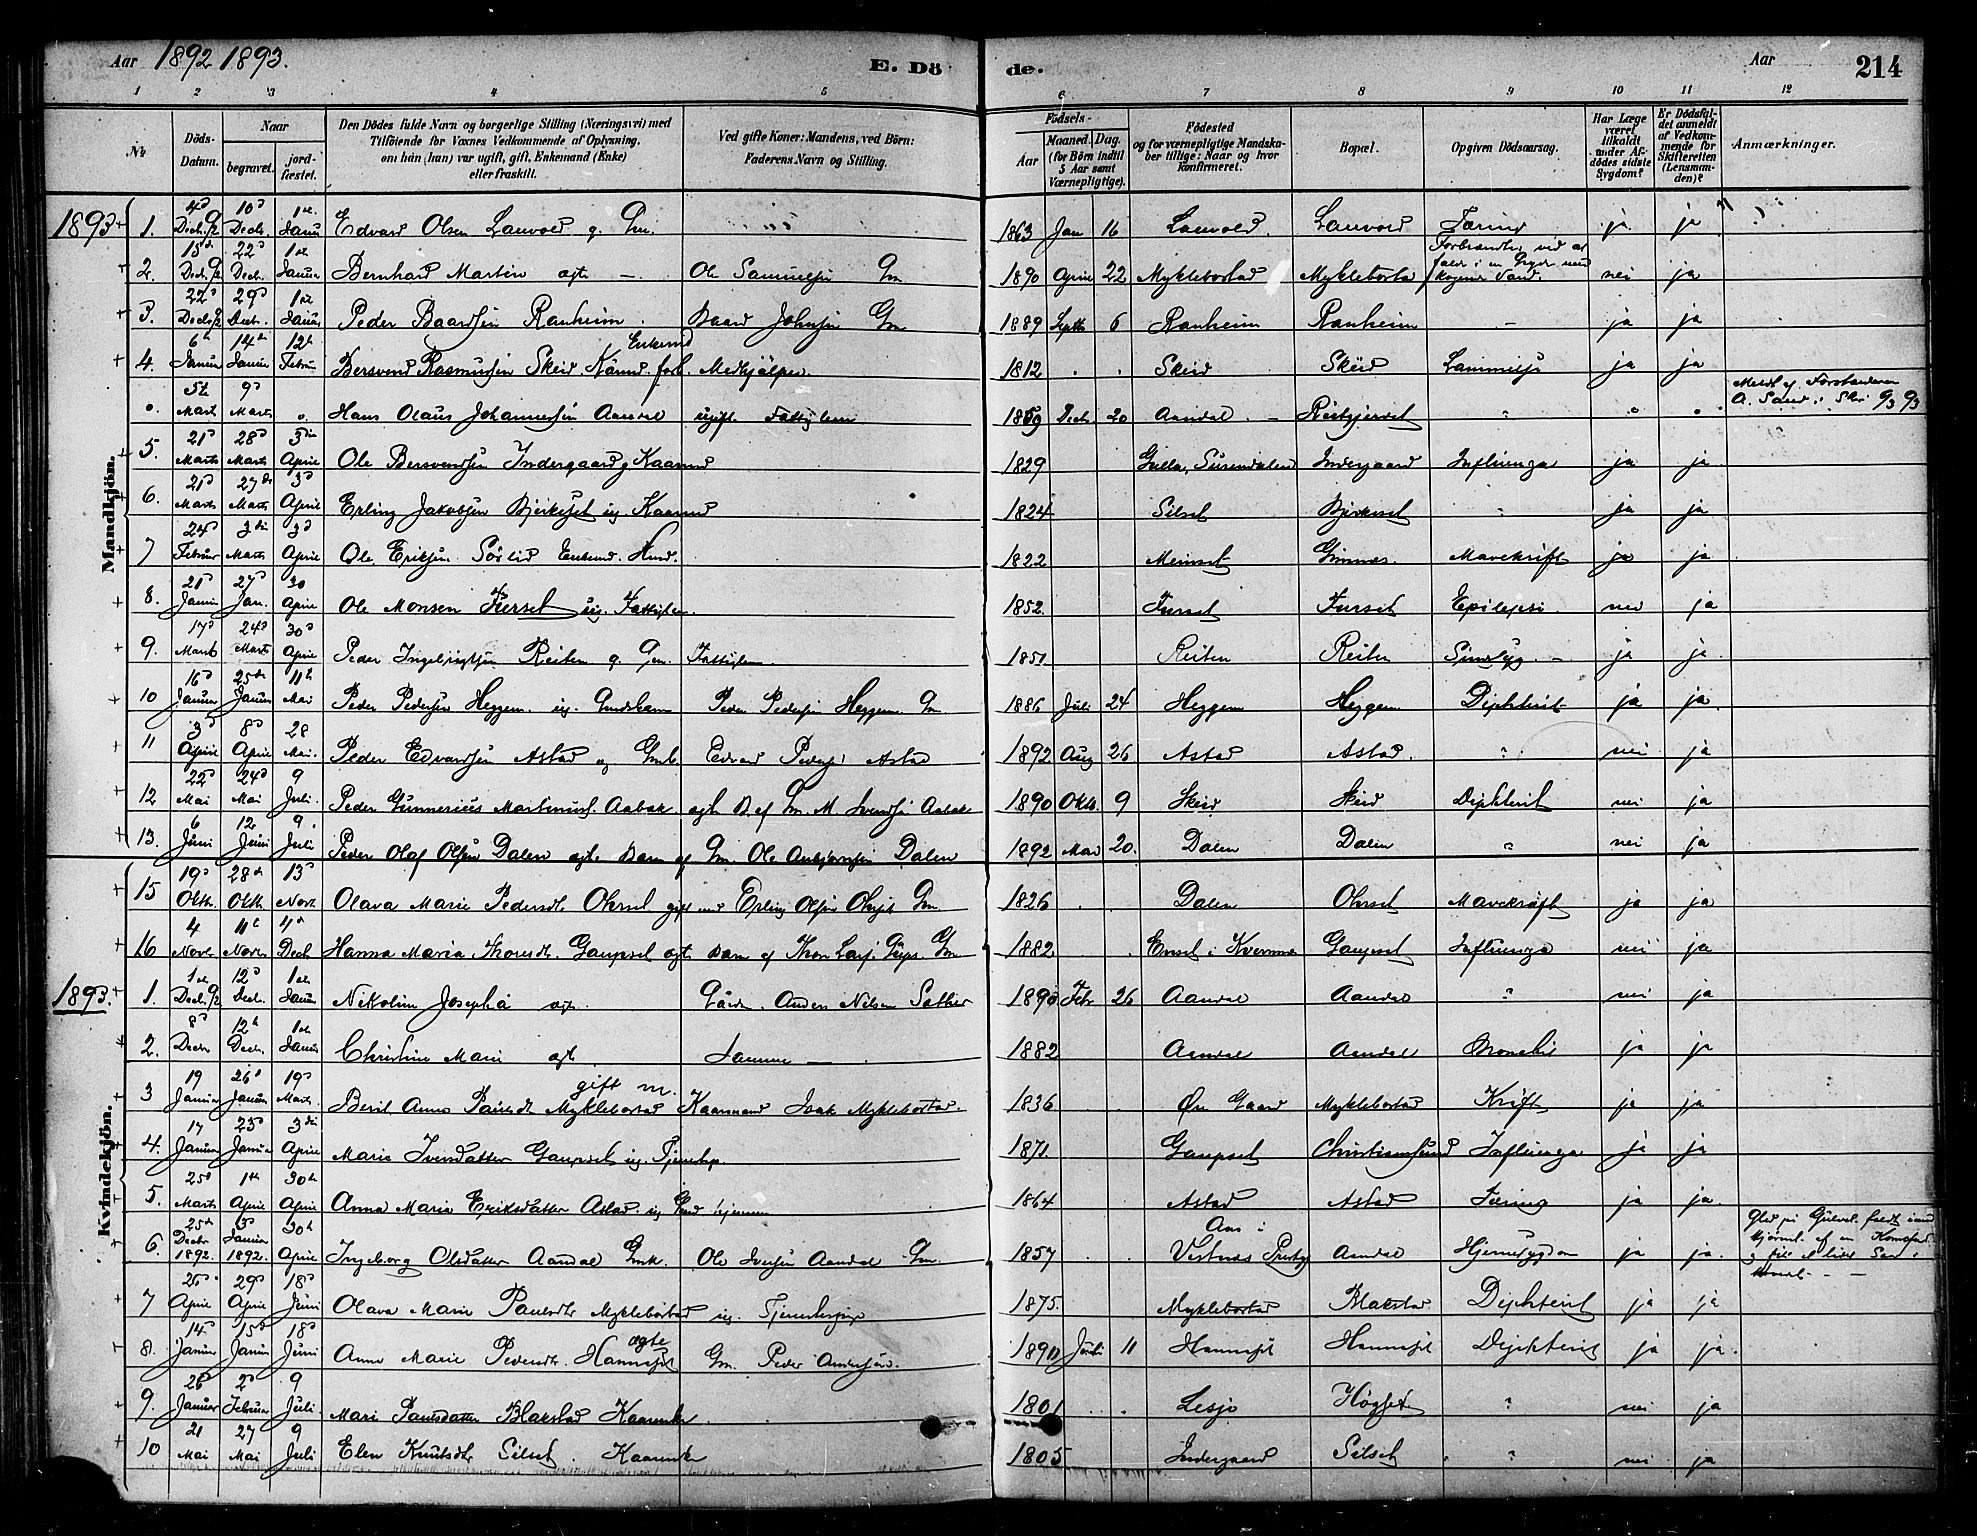 Aar 1892 1893. E. Dö
de. Aar 214
1 2 3 4 5 6 7 8 9 10 11 12
No Döds-Datum. Naar begravet. jordfæstet. Den Dödes fulde Navn og borgerlige Stilling (Næringsvei) med Tilföiende for Voxnes Vedkommende af Oplysning, om hun (han) var ugift, gift, Enkemand (Enke) eller fraskilt. Ved gifte Koner: Mandens, ved Börn: Faderens Navn og Stilling. Födsels- Aar Maaned. Dag. (for Börn indtil 5 Aar samt Værnepligtige). Födested og for værnepligtige Mandskaber tillige: Naar og hvor konfirmeret. Bopæl. Opgiven Dödsaarsag. Har Læge været tilkaldt under Afdödes sidste Sygdom? Er Dödsfaldet anmeldt af Vedkommende for Skifteretten (Lensmanden)? Anmærkninger.
Mandkjön.
1893 1. 4d Decb. 92 10d Decb. 1ste Januar Edvard Olsen Lauvold g. Gm. 1863 Jan 16 Lauvold Lauvold Tæring ja ja
2. 15d Decb. 92 22d Decb. 1ste Januar Bernhard Martin ægte Ole Samuelsen Gm 1890 April 22 Myklebostad Myklebostad Forbrændte ved at falde i en Gryde med kogende Vand. nei ja
3. 22d Decb. 92 29d Decb. 1ste Januar Peder Baardsen Ranheim. Baard Johnsen Gm 1889 Septb 6 Ranheim Ranheim - ja ja
4. 6te Januar 14de Januar 12te Februar Bersvend Rasmussen Skeid. Kaarmd. forh. Medhjælper. Enkemd 1812 Skeid Skeid ja ja
5te Marts 9d Marts Hans Olaus Johannessen Aandal ugift Fattiglem 1869 Decb. 20 Aandal - " Meldt af Forstanderen A. Sand i 9/3 93
5. 21d Marts 28d Marts 3die April Ole Bersvendsen Indergaard g. Kaarmd 1829 Gulla, Surendalen Indergaard Influenza ja ja
6. 21d Marts 27de Marts 3d April Erling Jakobsen Bjerkeset ug. Kaarmd 1824 Silset Bjerkeset " ja ja
7 24d Februar 3die Marts 3d April Ole Eriksen Sörlid Enkemd. Husmd. 1822 Meinset Gimnes. Mavekræft ja ja
8. 21d Januar 27d Jan. 30 April Ole Monsen Furset ug. Fattiglem. 1852 Furset Furset Epilepsi nei ja
9. 17d Marts 24d Marts 30d April Peder Ingebrigtsen Reiten g. Gm. Fattiglem 1851 Reiten Reiten Sindssyg. ja ja
10 16d Januar 25de Januar 11te Mai Peder Pedersen Heggem ug. Peder Pedersen Heggem Gm 1886 Juli 24 Heggem Heggem Difhterit ja ja
11 3d April 8d April 28 Mai Peder Edvardsen Astad ug Gmb. Edvard Peders. Astad 1892 Aug 26 Astad Astad. " nei ja
12 22d Mai 24d Mai 9 Juli. Peder Gunnerius Martinus. Aabak ægt B. af Gm. M. Svendsen Aabak 1890 Oktb. 9 Skeid Skeid Difhterit nei ja
13. 6 Juni 12 Juni 9 Juli Peder Olaf Olsen Dalen ægte Barn af Gm. Ole Dalen 1892 Mai 20. Dalen Dalen " nei ja
Kvindekjön.
15 19d Oktb. 28de Oktb. 13d Novb. Olava Marie Pedersdtr. Ohrset gift med Erling Olsen Ohrset Gm. 1826 Dalen Ohrset Mavekræft ja ja
16 4 Novbr 11te Novbr. 4d Decb. Hanna Maria Thoresdtr. Gaupset ægt Barn af Thore Lars. Gaups. Gm 1882 Enset i Kvernnæs Gaupset Influenza nei ja
1893. 1. 1ste Decb. 92 12d Decb. 1ste Januar Nikoline Josepha ægt. Gaardm. Anders Nilsen Sæther 1890 Febr 26 Aandal Aandal " nei ja
2. 8d Decbr 12te Decb. 1ste Januar Christine Marie ægt Samme 1882 Aandal Aandal ja ja
3 19 Januar 26d Januar 19d Marts Berit Anna Paulsdtr. Myklebostad gift m. Kaarmand Isak Myklebostad. 1836 Øre Gaard Myklebostad Kræft ja ja
4. 17 Januar 25d Januar 3die April Marie Iversdatter Gaupset ug. Tjenestep. 1871. Gaupset Christiansund Influenza ja ja
5. 25d Marts 1ste April 30te April Anna Maria Eriksdatter Astad. ug hjemme 1864 Astad Astad Tæring ja ja
6. 25de Decbr 1892. 3d Januar 1892. 30te April Ingeborg Olsdatter Aandal Gmk. Ole Iversen Aandal Gm. 1857 Aas i Vestnæs Præstgj. Aandal Hjernesygdom ja ja. Gled på Gulvet. faldt mod Hjørnet af en Komfur & fik et lidet Saar i
7 25 April 29d April 18d Juni Olava Marie Paulsdtr. Myklebostad ug. Tjenestepige 1875. Myklebostad Blakstad Difhterit ja ja
8. 14 Januar 15d Januar 18d Juni Anne Marie Pedersdtr. Hannaset ægte Gm. Peder Andersen. 1890 11 Hannaset Hannaset Difhterit ja ja.
9. 26 Januar 2d Februar 9 Juli. Mari Paulsdatter Blakstad Kaarenke. 1801 Lesjø Høgset " nei ja
10 21 Mai 27 Mai 9 Juli Elen Knutsdtr Silset. Kaarenke 1805 Indergaard Silset " nei ja